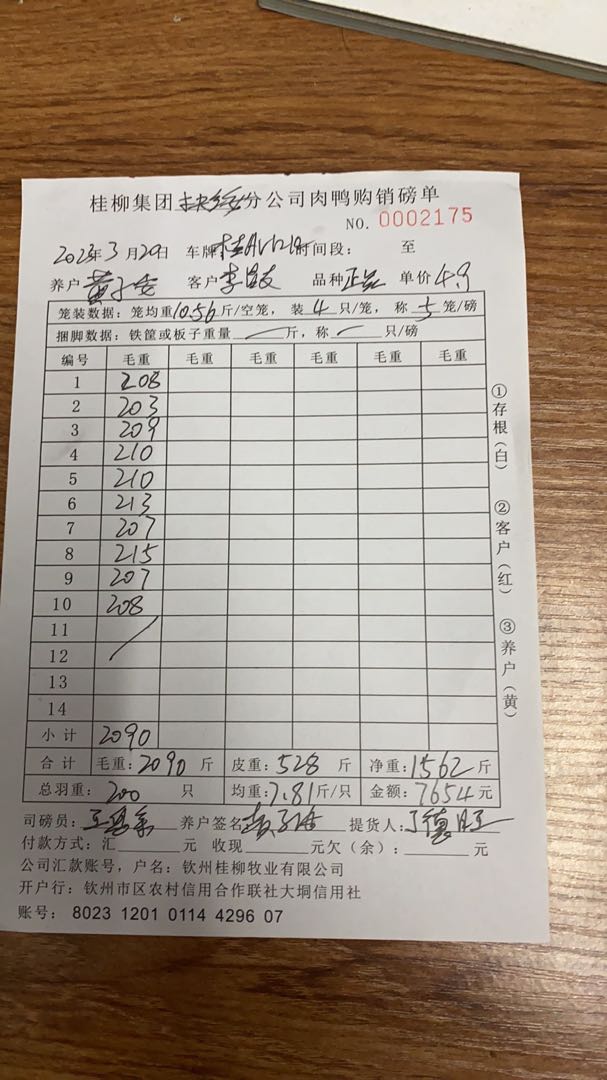 桂柳集团 分公司肉鸭购销磅单
NO. 0002175
2023年3月20日 车牌 时间段: 至
养户 黄 客户 李 品种 正品 单价 4.9
笼装数据: 笼均重10.56斤/空笼, 装 4 只/笼, 称 5 笼/磅
捆脚数据: 铁筐或板子重量 斤, 称 只/磅
编号 毛重 毛重 毛重 毛重 毛重 毛重
1 208
2 203
3 209
4 210
5 210
6 213
7 207
8 215
9 207
10 208
11
12
13
14
小计 2090
合计 毛重: 2090 斤 皮重: 528 斤 净重: 1562 斤
总羽重: 200 只 均重: 7.81 斤/只 金额: 7654 元
司磅员: 养户签名 提货人: 德旺
付款方式: 汇 元 收现 元欠(余): 元
公司汇款账号, 户名: 钦州桂柳牧业有限公司
开户行: 钦州市区农村信用合作联社大垌信用社
账号: 8023 1201 0114 4296 07
①存根(白)
②客户(红)
③养户(黄)